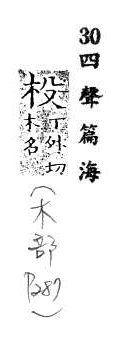 30四聲篇海
杸
丁外切
木名
(木部P287)